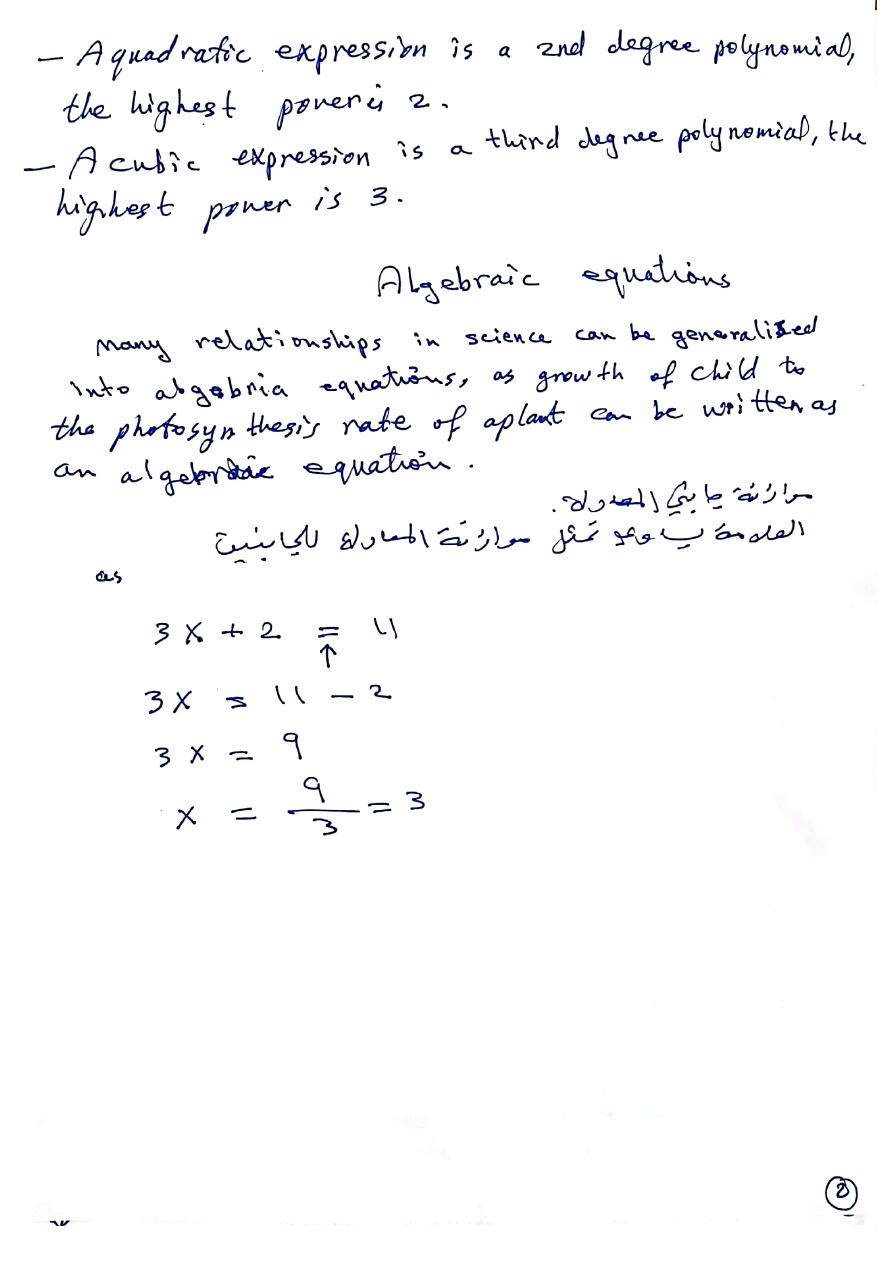 - A quadratic expression is a 2nd degree polynomial,
the highest power is 2.
- A cubic expression is a third degree polynomial, the
highest power is 3.
Algebraic equations
Many relationships in science can be generalized
into algebria equations, as growth of child to
the photosynthesis rate of a plant can be written as
an algebraic equation.
موازنة جانبي المعادلة.
العلامة تمثل موازنة المعادلة للجانبين
as
3x + 2 = 11
↑
3x = 11 - 2
3x = 9
x = 9/3 = 3
8